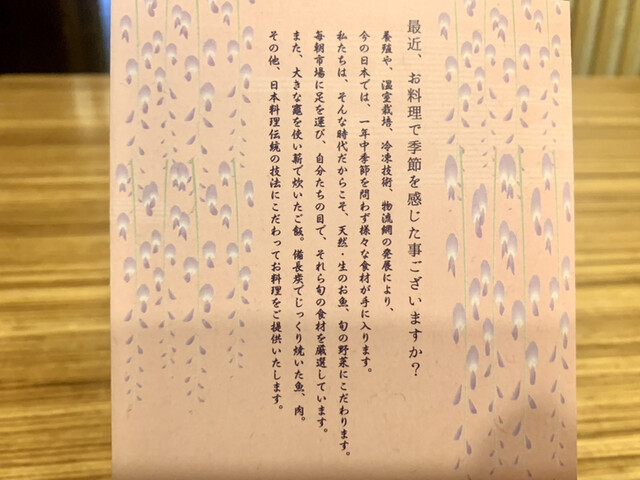 最近、お料理で季節を感じた事ございますか？
養殖や、温室栽培、冷凍技術、物流網の発展により、
今の日本では、一年中季節を問わず様々な食材が手に入ります。
私たちは、そんな時代だからこそ、天然・生のお魚、旬の野菜にこだわります。
毎朝市場に足を運び、自分たちの目で、それら旬の食材を厳選しています。
また、大きな竈を使い薪で炊いたご飯。備長炭でじっくり焼いた魚、肉。
その他、日本料理伝統の技法にこだわってお料理をご提供いたします。